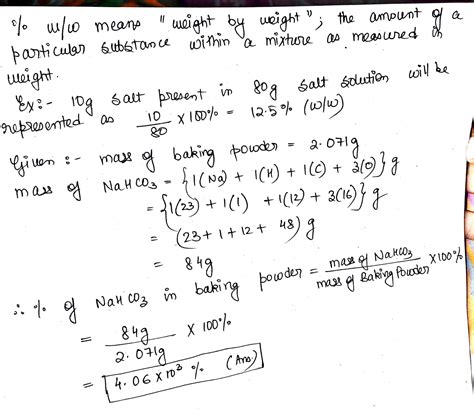 % w/w means "weight by weight"; the amount of a
particular substance within a mixture as measured in
weight.
Ex:- 10g salt present in 80g salt solution will be
represented as 10/80 × 100% = 12.5% (w/w)
Given :- mass of baking powder = 2.071g
mass of NaHCO3 = {1(Na) + 1(H) + 1(C) + 3(O)} g
= {1(23) + 1(1) + 1(12) + 3(16)} g
= (23 + 1 + 12 + 48) g
= 84g
∴ % of NaHCO3 in baking powder = mass of NaHCO3 / mass of Baking Powder × 100%
= 84g / 2.071g × 100%
= 4.06 × 10³ % (Ans)